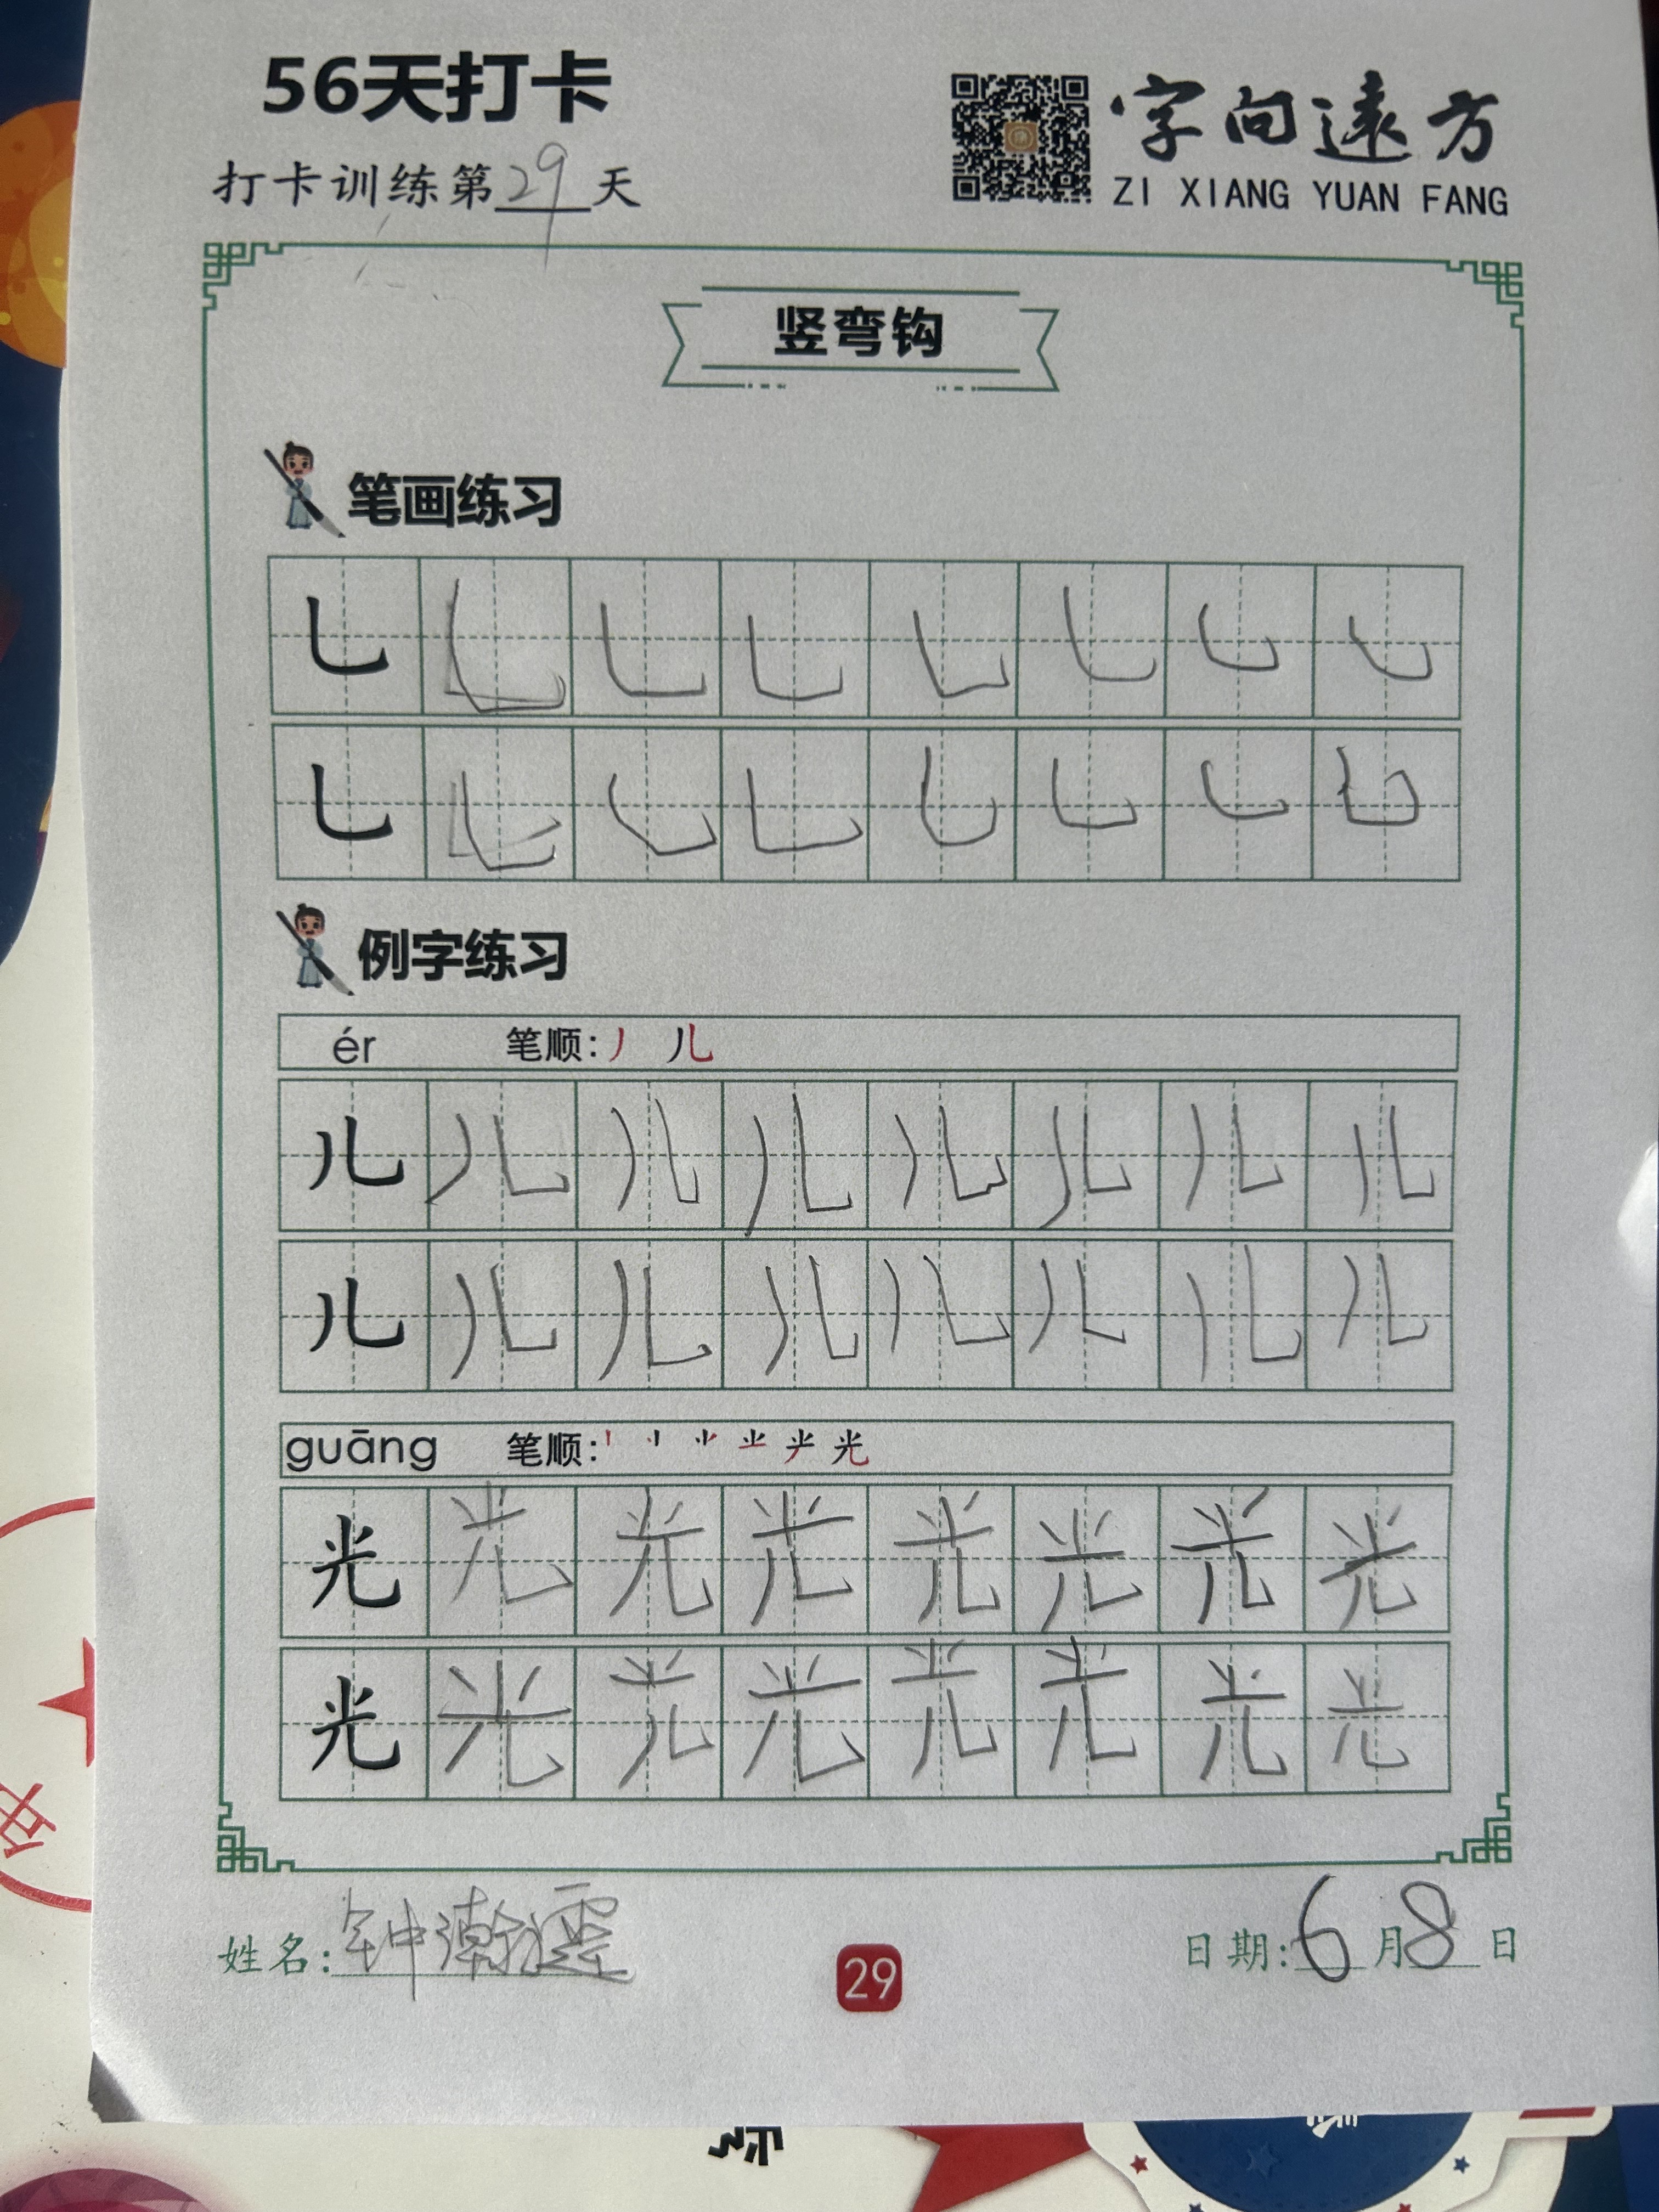 56天打卡
字向遠方
ZI XIANG YUAN FANG
打卡训练第29天
竖弯钩
笔画练习
乚 乚 乚 乚 乚 乚 乚 乚
乚 乚 乚 乚 乚 乚 乚 乚
例字练习
ér 笔顺: 丿 儿
儿 儿 儿 儿 儿 儿 儿 儿
儿 儿 儿 儿 儿 儿 儿 儿
guāng 笔顺: 光
光 光 光 光 光 光 光 光
光 光 光 光 光 光 光 光
姓名: 钟瀚
29
日期: 6月8日